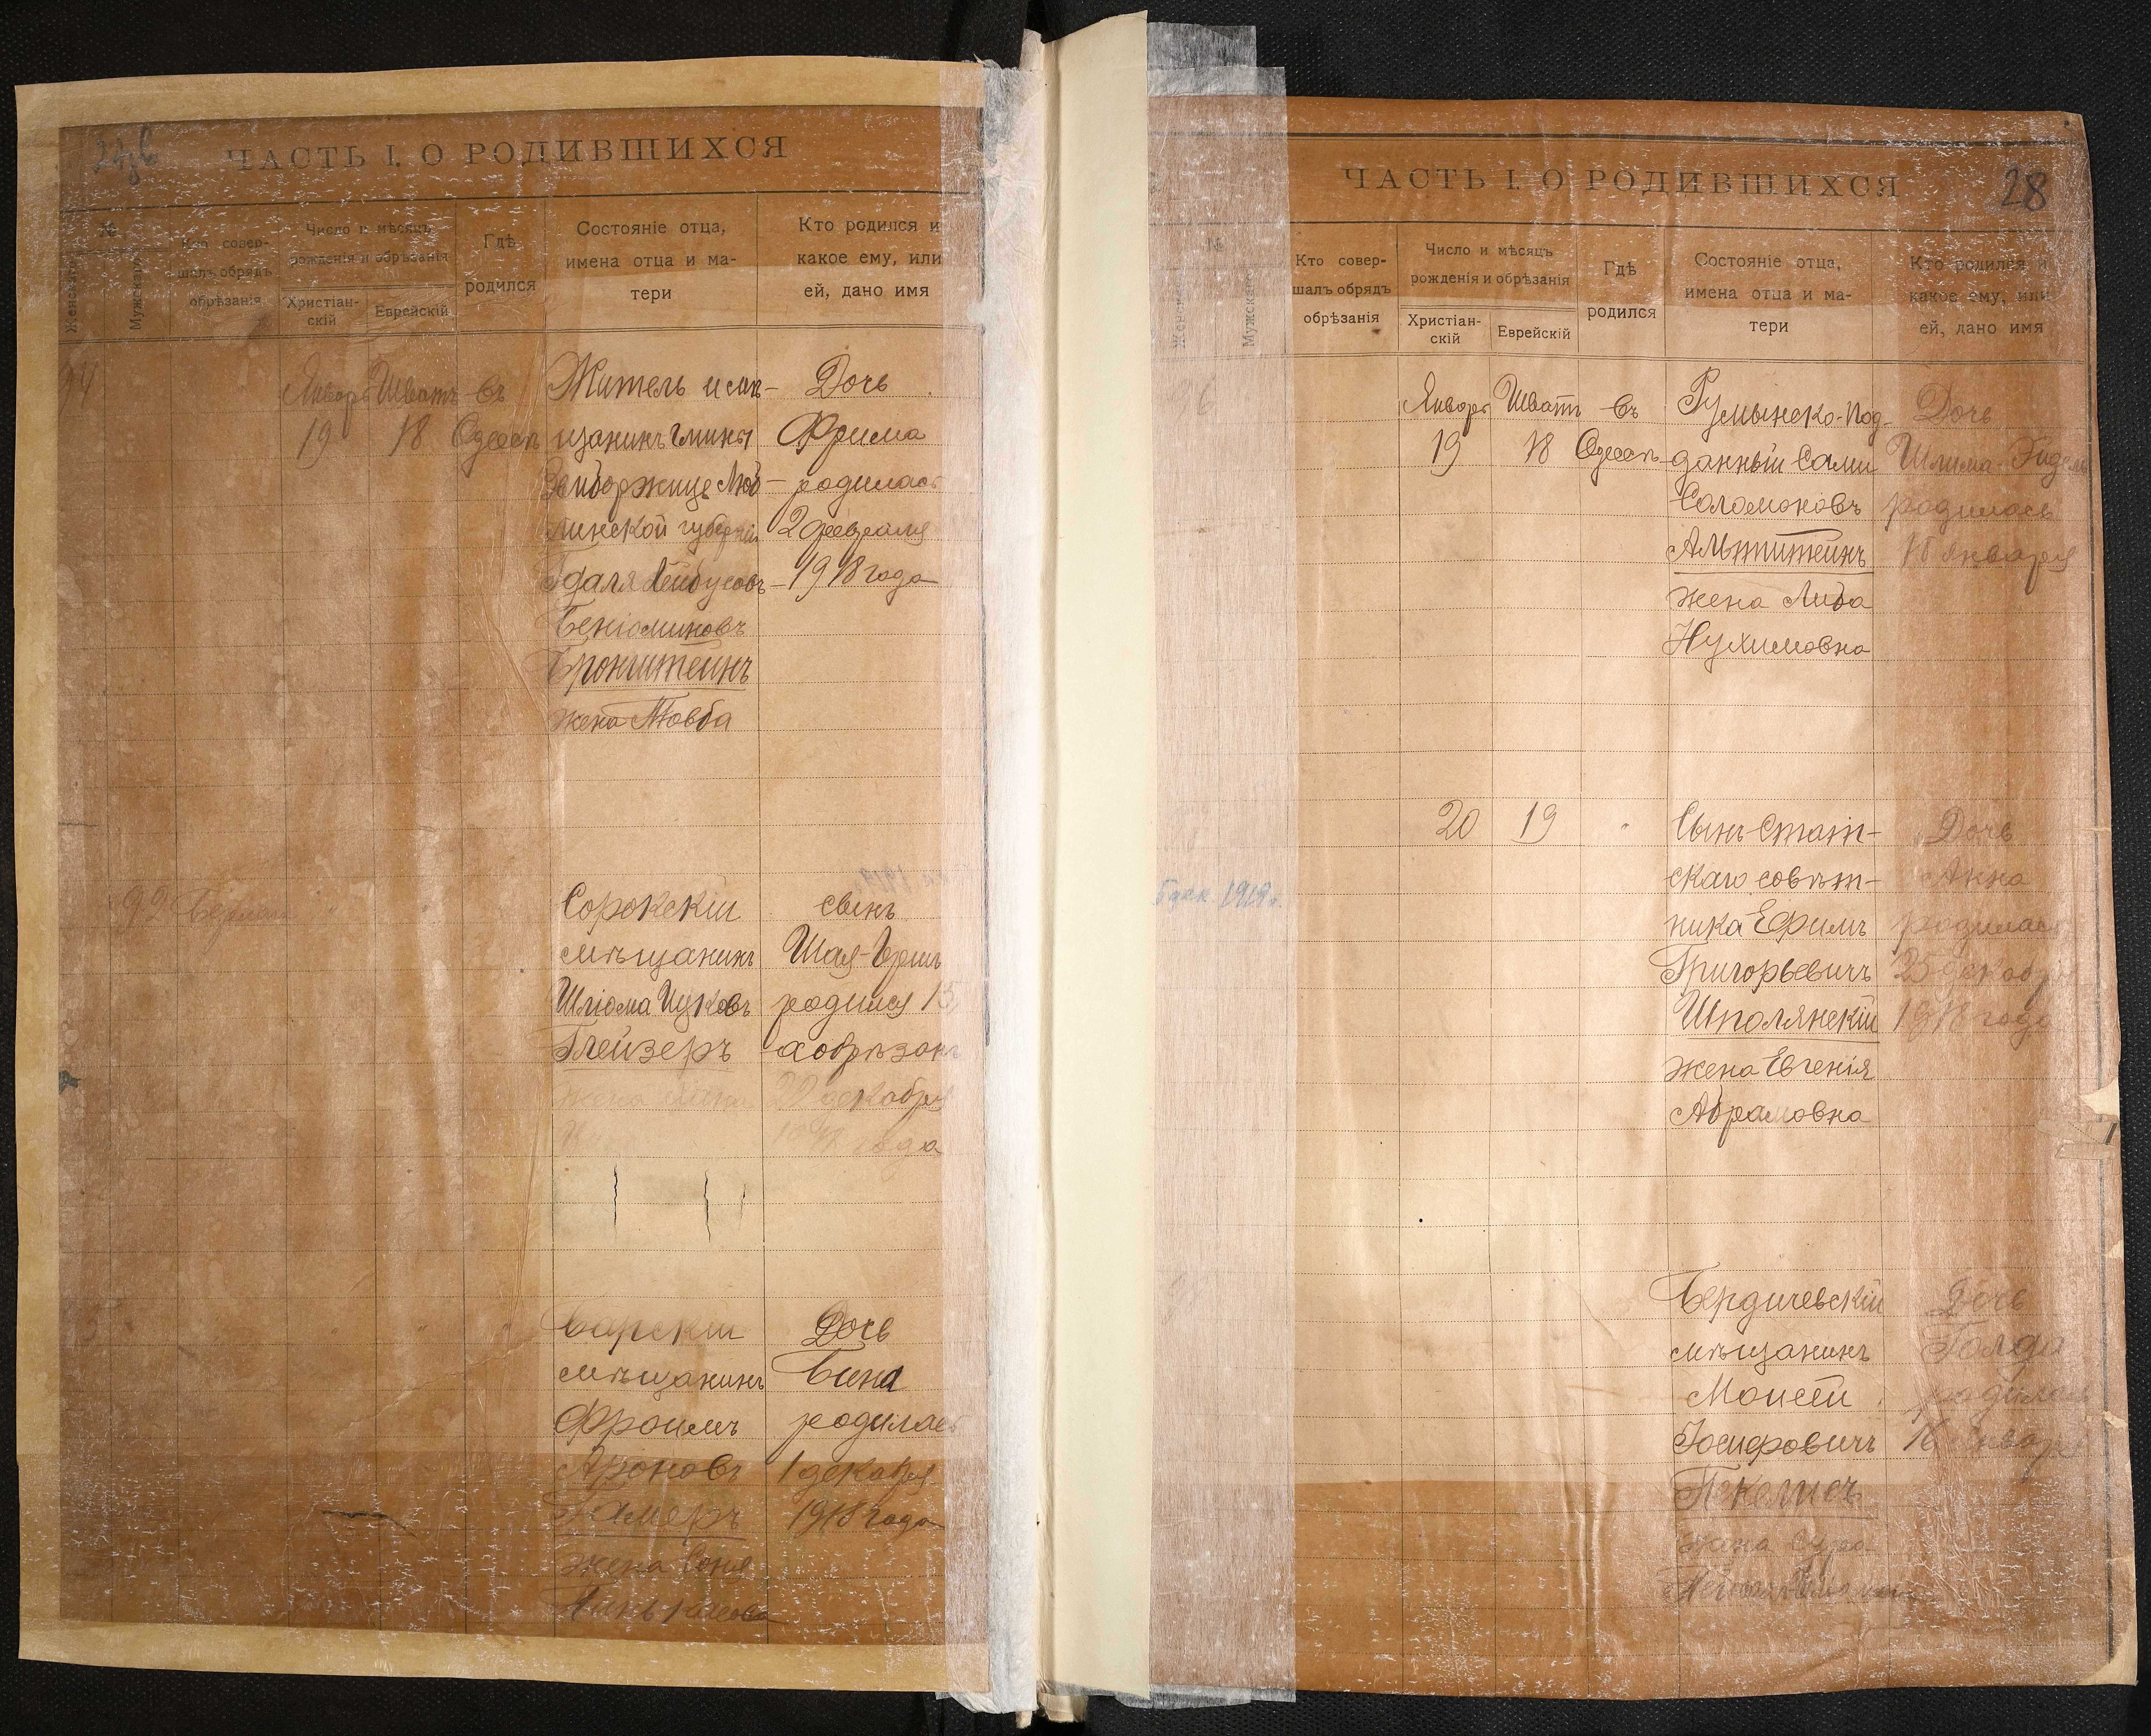 ЧАСТЬ I. О РОДИВШИХСЯ
№
Женскаго
Мужскаго
Кто совер-
шалъ обрядъ
обрѣзанія
Число и мѣсяцъ
рожденія и обрѣзанія
Христіан-
скій
Еврейскій
Гдѣ
родился
Состояніе отца,
имена отца и ма-
тери
Кто родился и
какое ему, или
ей, дано имя
94
Январь Шватъ въ
19 18 Одессѣ
Житель и
щанинъ гмины
линской губерніи
Лейбусовъ
Беніоминовъ
Бронштейнъ
жена Товба
Дочь
Фрима
родилась
2 февраля
1918 года
99
Сорокскій
мѣщанинъ
Шліома Ицковъ
Глейзеръ
жена
сынъ
Шая-Герш
родился 15
а обрѣзанъ
22 декабря
1918 года
Барскій
мѣщанинъ
Фроимъ
Ароновъ
жена Соня
Дочь
Бина
родилась
1 декабря
1918 года
ЧАСТЬ I. О РОДИВШИХСЯ
28
№
Женскаго
Мужскаго
Кто совер-
шалъ обрядъ
обрѣзанія
Число и мѣсяцъ
рожденія и обрѣзанія
Христіан-
скій
Еврейскій
Гдѣ
родился
Состояніе отца,
имена отца и ма-
тери
Кто родился и
какое ему, или
ей, дано имя
6
Январь Шватъ въ
19 18 Одессѣ
Румынско-под-
данный Сами
Соломоновъ
Альтштейнъ
жена Либа
Нухимовна
Дочь
родилась
января
1919 г.
20 19 "
Сынъ Стат-
скаго совѣт-
ника Ефимъ
Григорьевичъ
Шполянскій
жена Евгенія
Абрамовна
Дочь
Анна
родилась
25 декабря
1918 года
Бердичевскій
мѣщанинъ
Моисей
Іосифовичъ
Пекелисъ
жена Сура
Дочь
Голда
родилась
16 января